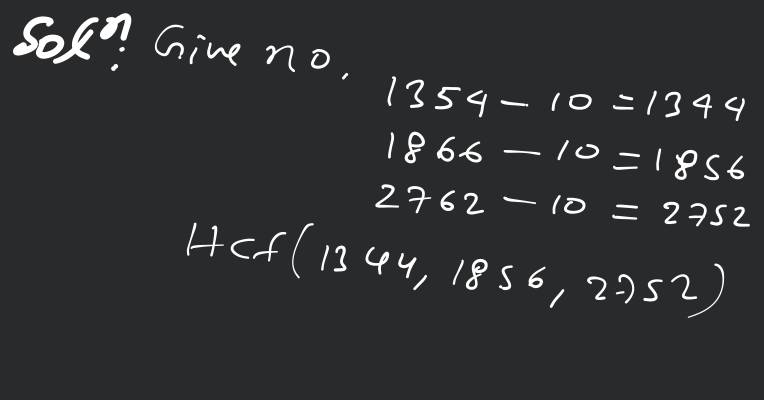 Solⁿ: Give no.
1354 - 10 = 1344
1866 - 10 = 1856
2762 - 10 = 2752
Hcf(1344, 1856, 2752)